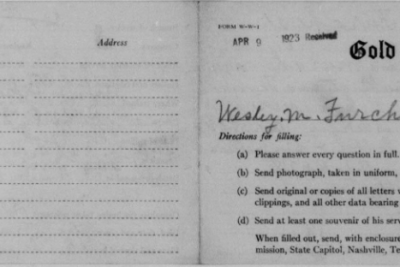 Address
FORM W-W-1
APR 9 1923 Received
Gold
Wesley. M. Furch
Directions for filling:
(a) Please answer every question in full.
(b) Send photograph, taken in uniform,
(c) Send original or copies of all letters
clippings, and all other data bearing
(d) Send at least one souvenir of his serv
When filled out, send, with enclosure
mission, State Capitol, Nashville, Te